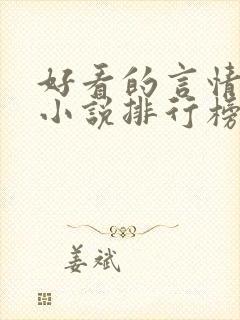 好看的言情
小说排行榜
姜斌